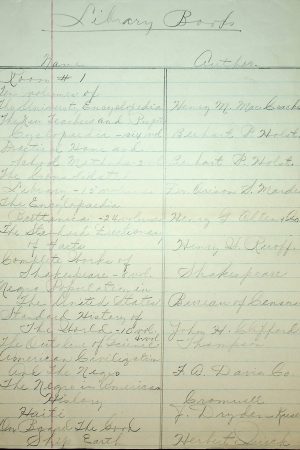 Library Books
Name Author
Room # 1
Compendiums of
The Eminent, Encyclopedia Henry M. Mac
The New Teachers and Pupils
Cyclopaedia Berhart P. Holst
Practical Home and
School Methods Berhart P. Holst.
The Consolidated
Library - 15 volumes Dr. Orison S. Marden
The Encyclopaedia
Brittanica - 24 volumes Henry G. Allen & Co
The Standard Dictionary
of Facts Henry W. Ruoff.
Complete Works of
Shakespeare Shakespeare
Negro Population in
The United States Bureau of Census
Standard History of
The World - 10 vol. John H. Clifford
The Outline of Science 4 vol Thompson
American Civilization
and the Negro F. A. Davis Co
The Negro in American
History Cromwell
Haiti J. Dryden
On Board The Good
Ship Earth Herbert Quick